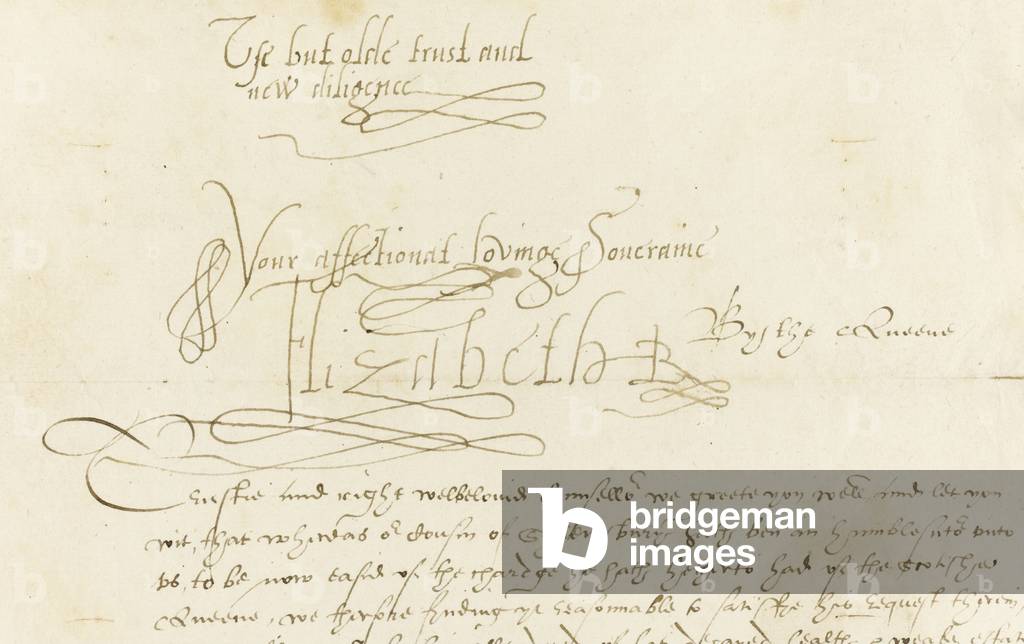 Use but olde trust and
new diligence
Your affectional lovinge Soveraine
Elizabeth R
By the Queene
Trustie and right welbeloved Counsello^r we greete you well, and let you
wit, that whereas o^r Cousin of hath ben an humble suto^r unto
us, to be now eased of the chardge he hath hetherto had of the Scotishe
Queene, we therfore finding it reasonnable to satisfie his request therein
bridgeman
images